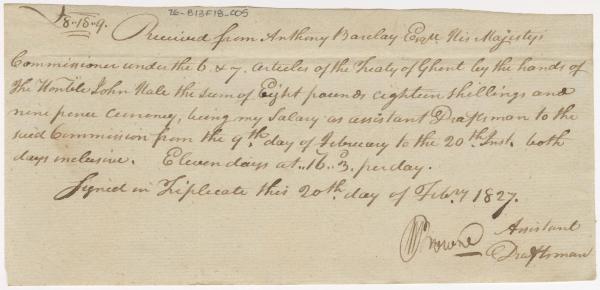 26-B13F18-005
£8..18..9.
Received from Anthony Barclay Esqre His Majesty's
Commissioner under the 6. & 7. Articles of the Treaty of Ghent by the hands of
The Honble John Hale the sum of Eight pounds eighteen shillings and
nine pence Currency, being my Salary as assistant Draftsman to the
said Commission from the 9th. day of February to the 20th. Inst. both
days inclusive. Eleven days at..16..3. per day.
Signed in Triplicate this 20th. day of Feby. 1827.
Browne Assistant
Draftsman